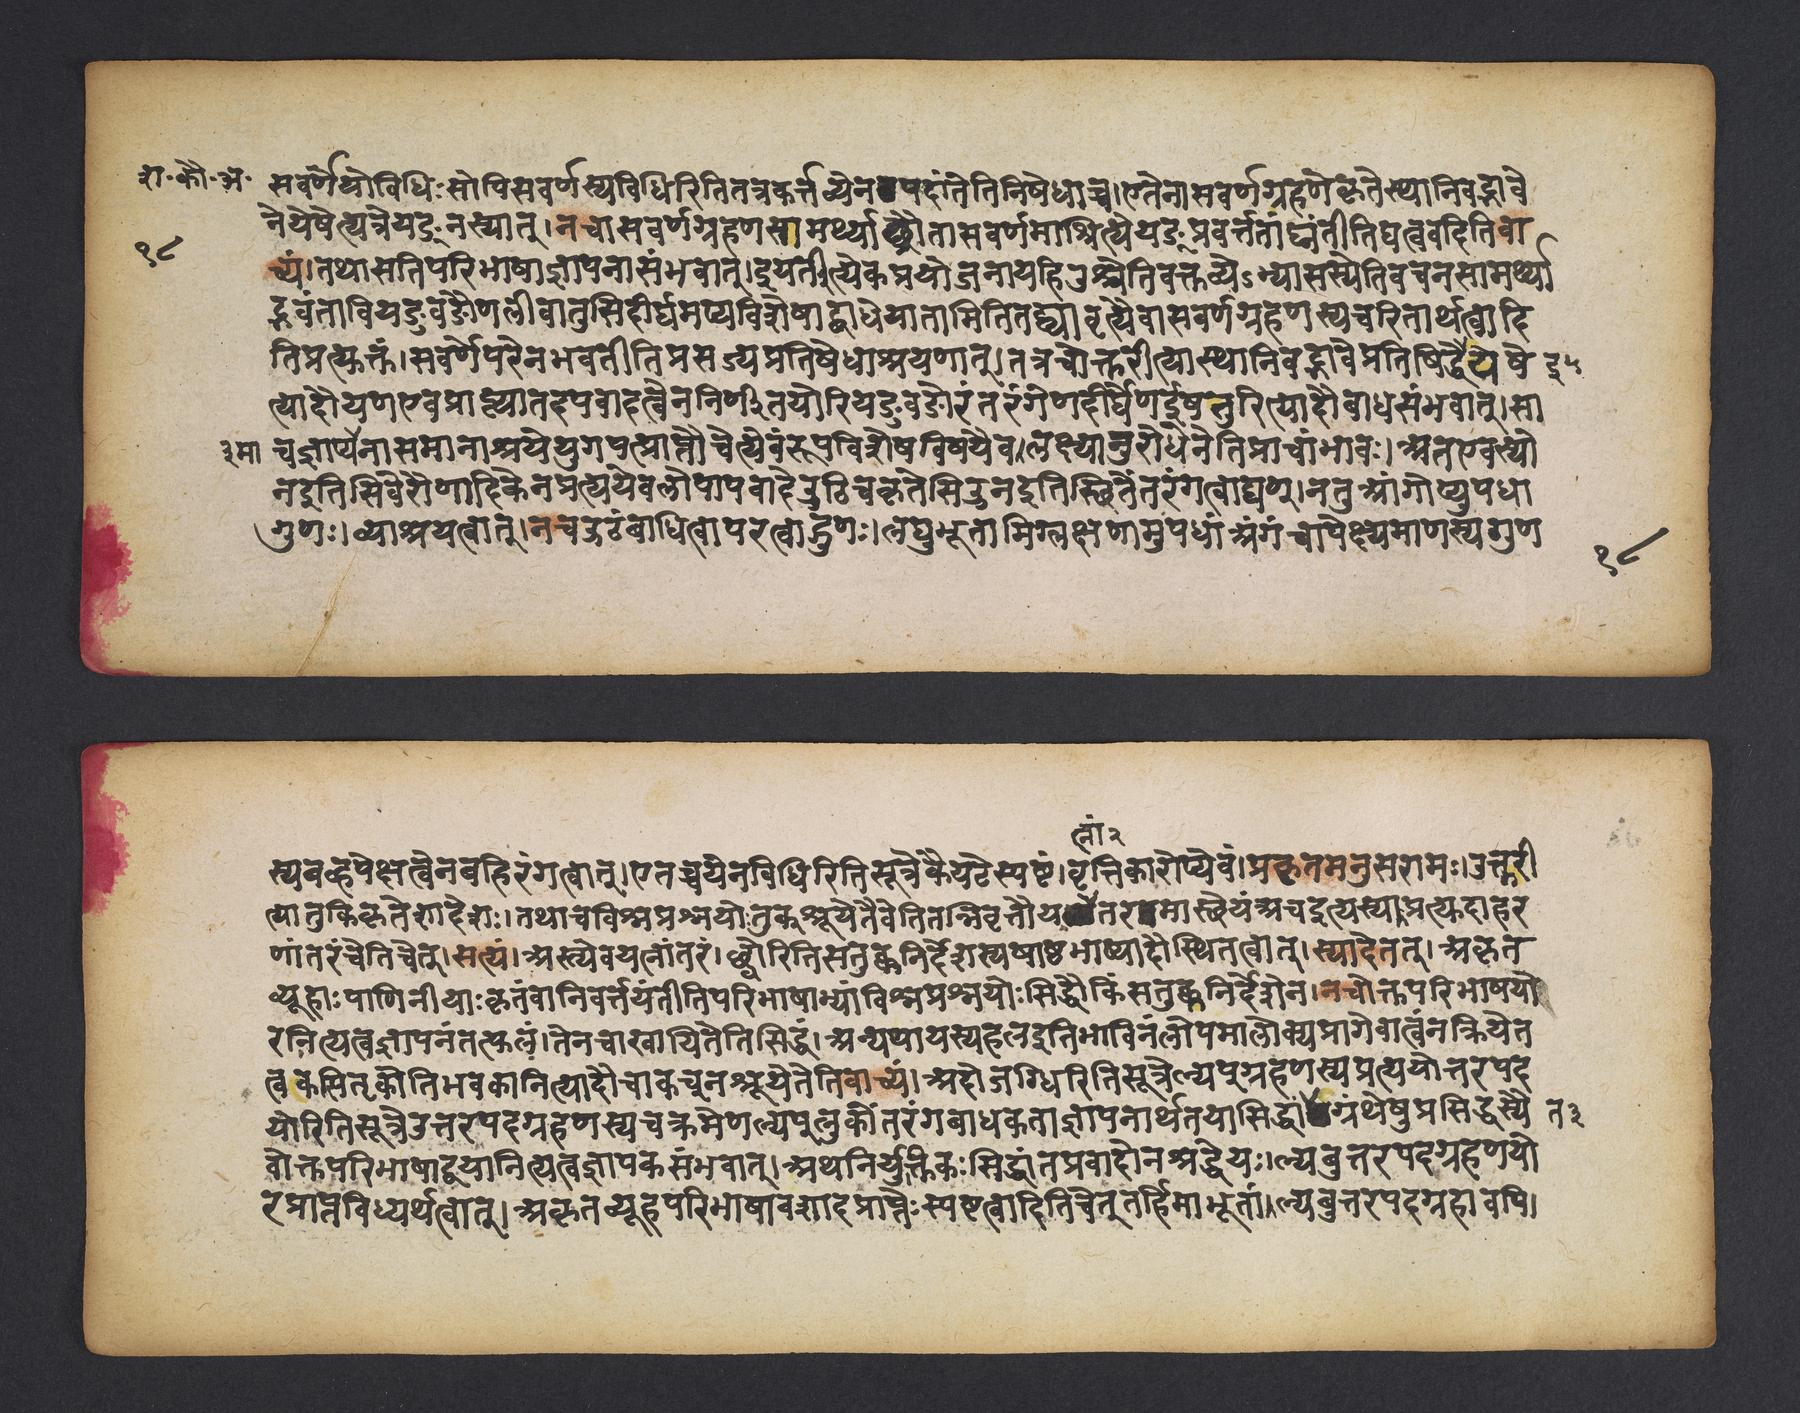 श॰ कौ॰ अ॰
सवर्णेयोविधिःसोपिसवर्णस्यविधिरितितत्रकर्त्तव्येनपदांतेतिनिषेधाच्च।एतेनासवर्णग्रहणेकृतेस्थानिवद्भावे
नेयेषेत्यत्रेयङ्नस्यात्।नचासवर्णग्रहणसामर्थ्याच्छ्रौतासवर्णमाश्रित्येयङ्प्रवर्त्ततांघ्नंतीतिघत्ववदितिवा
१८
च्यं।तथासतिपरिभाषाज्ञापनासंभवात्।इयर्तीत्येकप्रयोजनायहिउश्चेतिवक्तव्येऽभ्यासस्येतिवचनसामर्थ्या
द्भवंतावियङुवङौणलीवातुसिदीर्घमप्यविशेषाद्बाधेयातामितितद्व्यावृत्त्यैवासवर्णग्रहणस्यचरितार्थत्वादि
तिप्रत्युक्तं।सवर्णेपरेनभवतीतिप्रसज्यप्रतिषेधाश्रयणात्।तत्रचोक्तरीत्यास्थानिवद्भावेप्रतिषिद्धेयेषे
इ५
त्यादौयणएवप्राप्त्यातदपवादत्वेननिर्णीतयोरियङुवङोरंतरंगेणदीर्घेणईषतुरित्यादौबाधसंभवात्।सा
३मा
चज्ञाप्येनासमानाश्रयेयुगपत्प्राप्तौचेत्येवंरूपविशेषविषयैव।लक्ष्यानुरोधेनेतिप्राचांभावः।अतएवस्यो
नइतिसिवेरौणादिकेनप्रत्ययेवलोपापवादेउठिचकृतेसिउनइतिस्थितेंतरंगत्वाद्यण्।नतुआंगोप्युपधा
गुणः।व्याश्रयत्वात्।नचऊठंबाधित्वापरत्वाद्गुणः।लघुभूतामिग्लक्षणामुपधांअंगंचापेक्ष्यमाणस्यगुण
१८
त्नां२
स्यबव्हपेक्षत्वेनबहिरंगत्वात्।एतच्चयेनविधिरितिसूत्रेकैयटेस्पष्टं।वृत्तिकारोप्येवं।प्रकृतमनुसरामः।उक्तरी
त्यातुकिकृतेशादेशः।तथाचविश्नप्रश्नयोःतुक्श्रूयेतैवेतितन्निवृत्तौयतरमास्थेयंअचइत्यस्यप्रत्युदाहर
णांतरंचेतिचेत्।सत्यं।अस्त्येवयत्नांतरं।छ्वोरितिसतुक्कनिर्देशस्यषाष्ठभाष्यादौस्थितत्वात्।स्यादेतत्।अकृत
व्यूहाःपाणिनीयाःकृतंवानिवर्त्तयंतीतिपरिभाषाभ्यांविश्नप्रश्नयोःसिद्धौकिंसतुक्कनिर्देशेन।नचोक्तपरिभाषयो
रनित्यत्वज्ञापनंतत्फलं।तेनचाखायितेतिसिद्धं।अन्यथायस्यहलइतिभाविनंलोपमालोक्यप्रागेवात्वंनक्रियेत
त्वकेसितृकोतिभवकानित्यादौचाकचूनश्रूयेतेतिवाच्यं।अदोजग्धिरितिसूत्रेल्यप्ग्रहणस्यप्रत्ययोत्तरपद
योरितिसूत्रेउत्तरपदग्रहणस्यचक्रमेणल्यप्लुकोंतरंगबाधकताज्ञापनार्थतयासिद्धांग्रंथेषुप्रसिद्धस्यै
त३
वोक्तपरिभाषाद्वयानित्यत्वज्ञापकसंभवात्।अथनिर्युक्तिकःसिद्धांतप्रवादोनश्रद्धेयः।ल्यबुत्तरपदग्रहणयो
रप्राप्तविध्यर्थत्वात्।अकृतव्यूहपरिभाषावशादप्राप्तेःस्पष्टत्वादितिचेत्तर्हिमाभूतां।ल्यबुत्तरपदग्रहावपि।